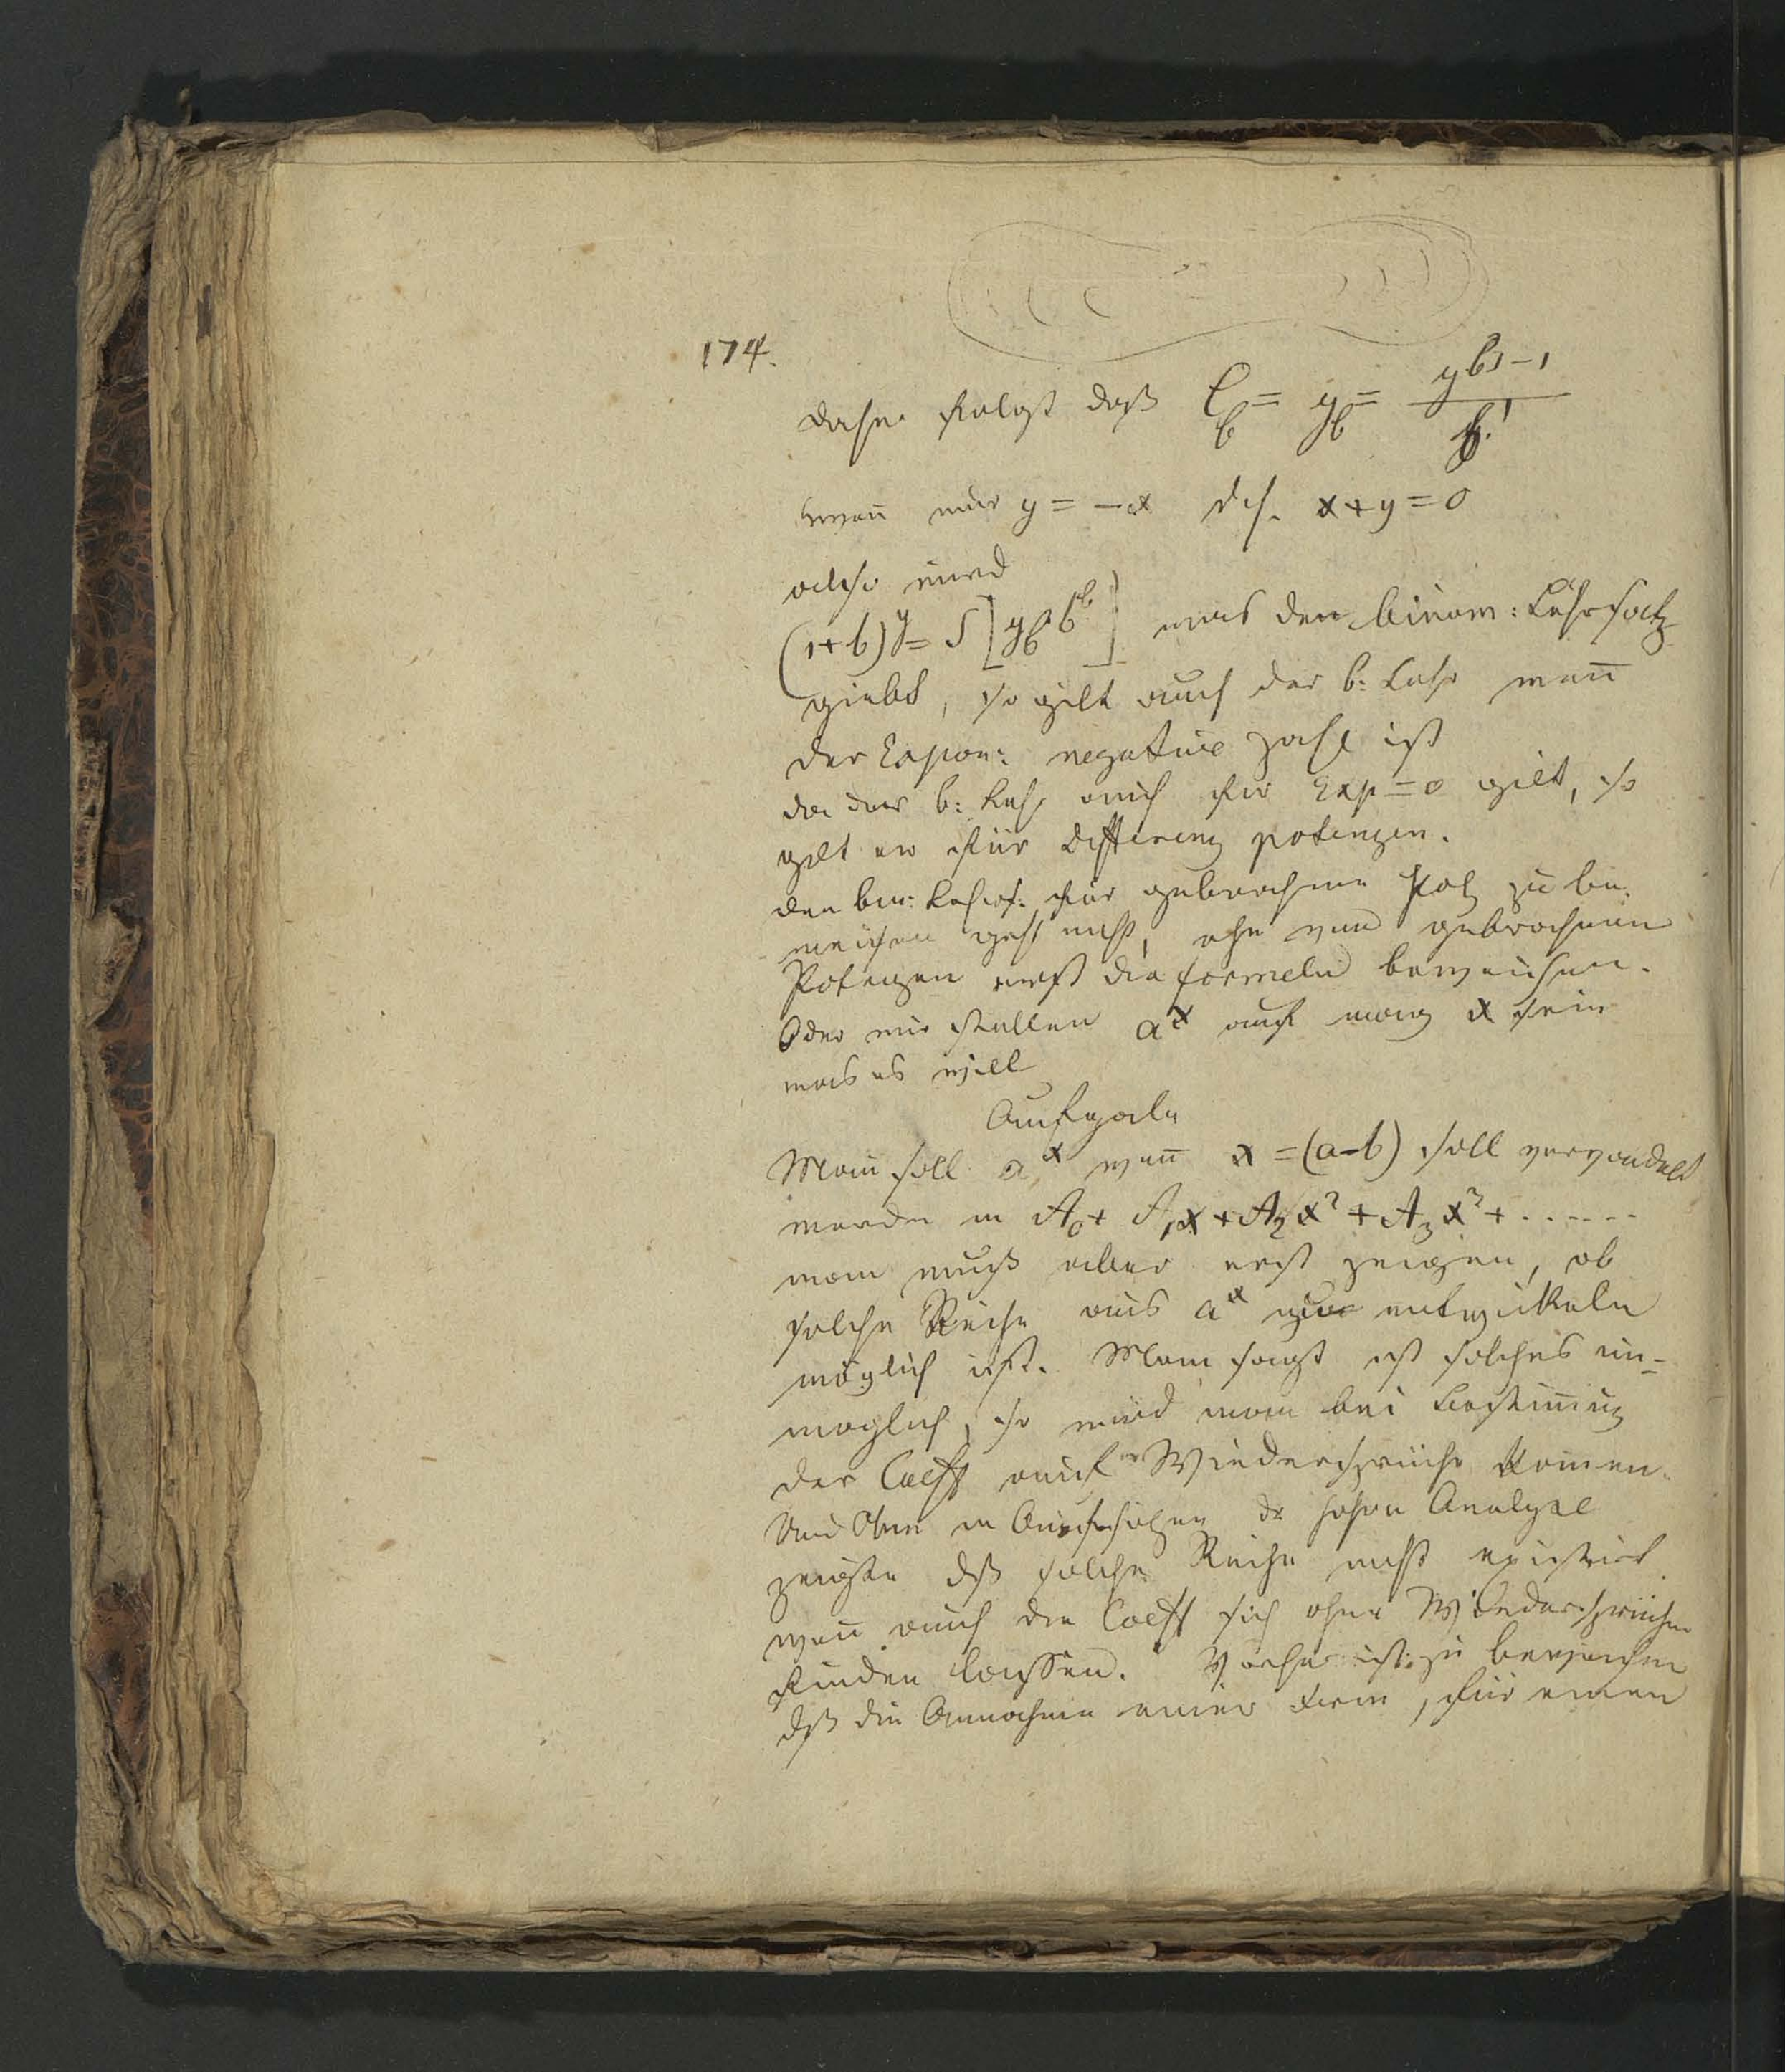 174.
daher folgt daß C_b = y_b = y^{b|-1} / b!
wenn nur y = -x d.h. x+y=0
also wird
(1+b)^y = S[y_b b^b] was den binom: Lehrsatz
giebt, so gilt auch der b: Lehr wenn
der Expon: negative Zahl ist
da der b: Lehr auch für Exp=0 gilt, so
gilt er für Differenz potenzen.
den bin: Lehrs: für gebrochene Potz zu be,
weisen geht nicht, ohne von gebrochnen
Potenzen erst die formeln beweisen.
Oder wir stellen a^x auf mag x sein
was es will
Aufgabe
Man soll a^x wenn x=(a-b) soll verwandelt
werden in A_0 + A_1x + A_2x^2 + A_3x^3 + ......
man muß aber erst zeigen, ob
solche Reihe aus a^x entwickeln
möglich ist. Man sagt ist solches un=
möglich, so wird man bei Bestimung
der Coeff auf Wiedersprüche komen.
in der hohen Analyse
zeigte dß solche Reihe nicht existirt
wen auch die Coeff sich ohne Wiedersprüche
finden lassen. Vorher ist zu beweisen
dß die Annahme einer Form, für einen